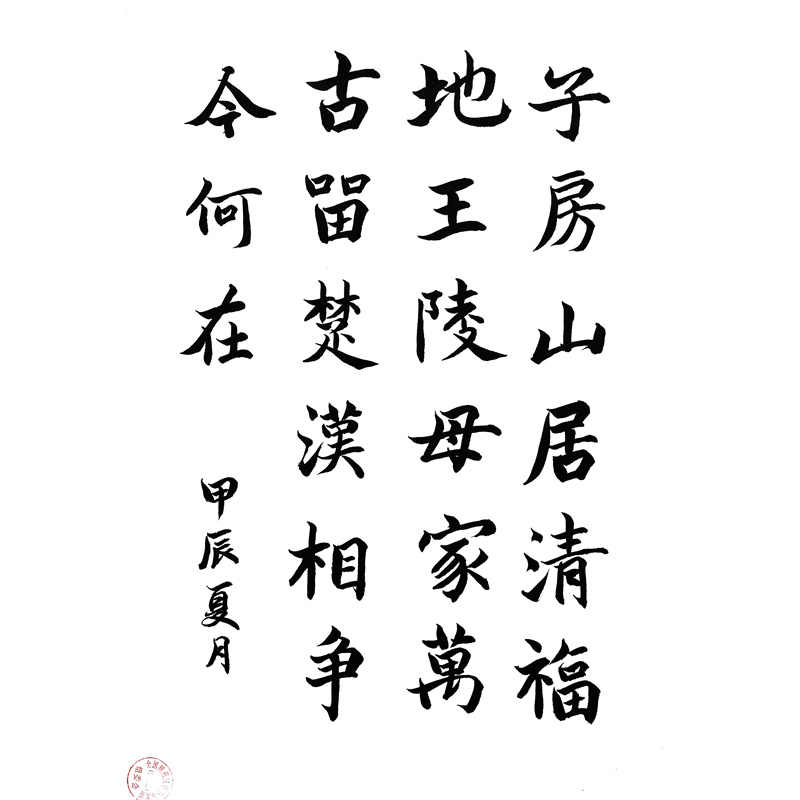 子房山居清福
地王陵母家萬
古畱楚漢相争
今何在
甲辰夏月